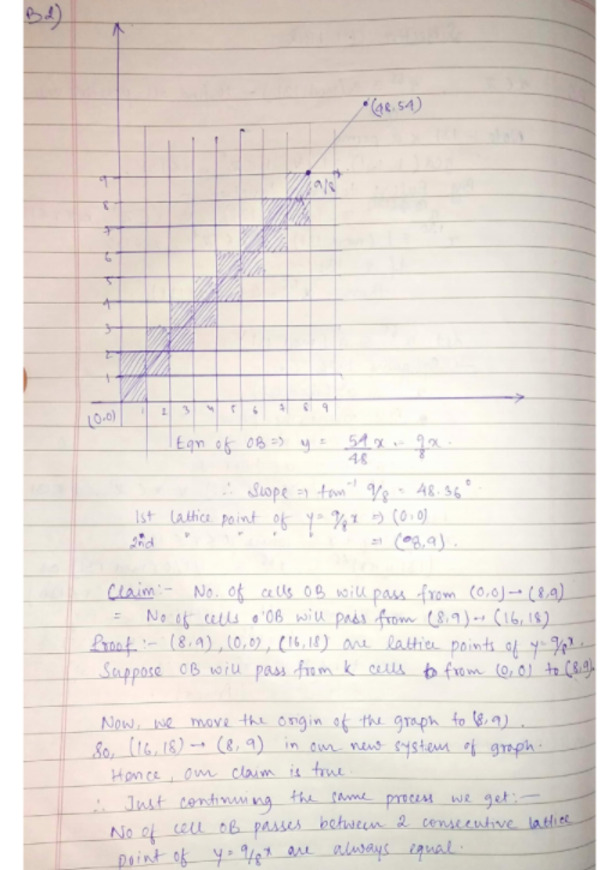 B2)
(48.54)
9
8
7
6
5
4
3
2
1
9/8
(0.0) 1 2 3 4 5 6 7 8 9
Eqn of OB ⇒ y = 54/48 x = 9/8 x.
∴ Slope ⇒ tan⁻¹ 9/8 = 48.36°
1st lattice point of y = 9/8 x ⇒ (0.0)
2nd " " " " ⇒ (8,9).
Claim:- No. of cells OB will pass from (0,0) → (8,9)
= No of cells OB will pass from (8,9) → (16,18)
Proof:- (8,9), (0,0), (16,18) are lattice points of y = 9/8 x.
Suppose OB will pass from k cells from (0,0) to (8,9)
Now, we move the origin of the graph to (8,9).
So, (16,18) → (8,9) in our new system of graph.
Hence, our claim is true.
∴ Just continuing the same process we get:—
No of cell OB passes between 2 consecutive lattice
point of y = 9/8 x are always equal.